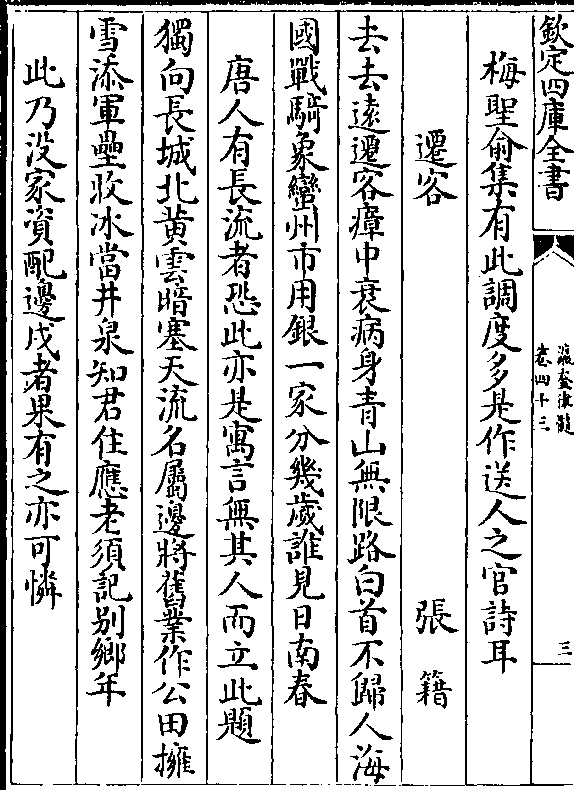 欽定四庫全書
瀛奎律髓
卷四十三
三
梅聖俞集有此調度多是作送人之官詩耳
遷客 張籍
去去遠遷客瘴中衰病身青山無限路白首不歸人海
國戰騎象蠻州市用銀一家分幾歲誰見日南春
唐人有長流者恐此亦是寓言無其人而立此題
獨向長城北黄雲暗塞天流名屬邊將舊業作公田擁
雪添軍壘收冰當井泉知君住應老須記别鄉年
此乃没家資配邊戍者果有之亦可憐